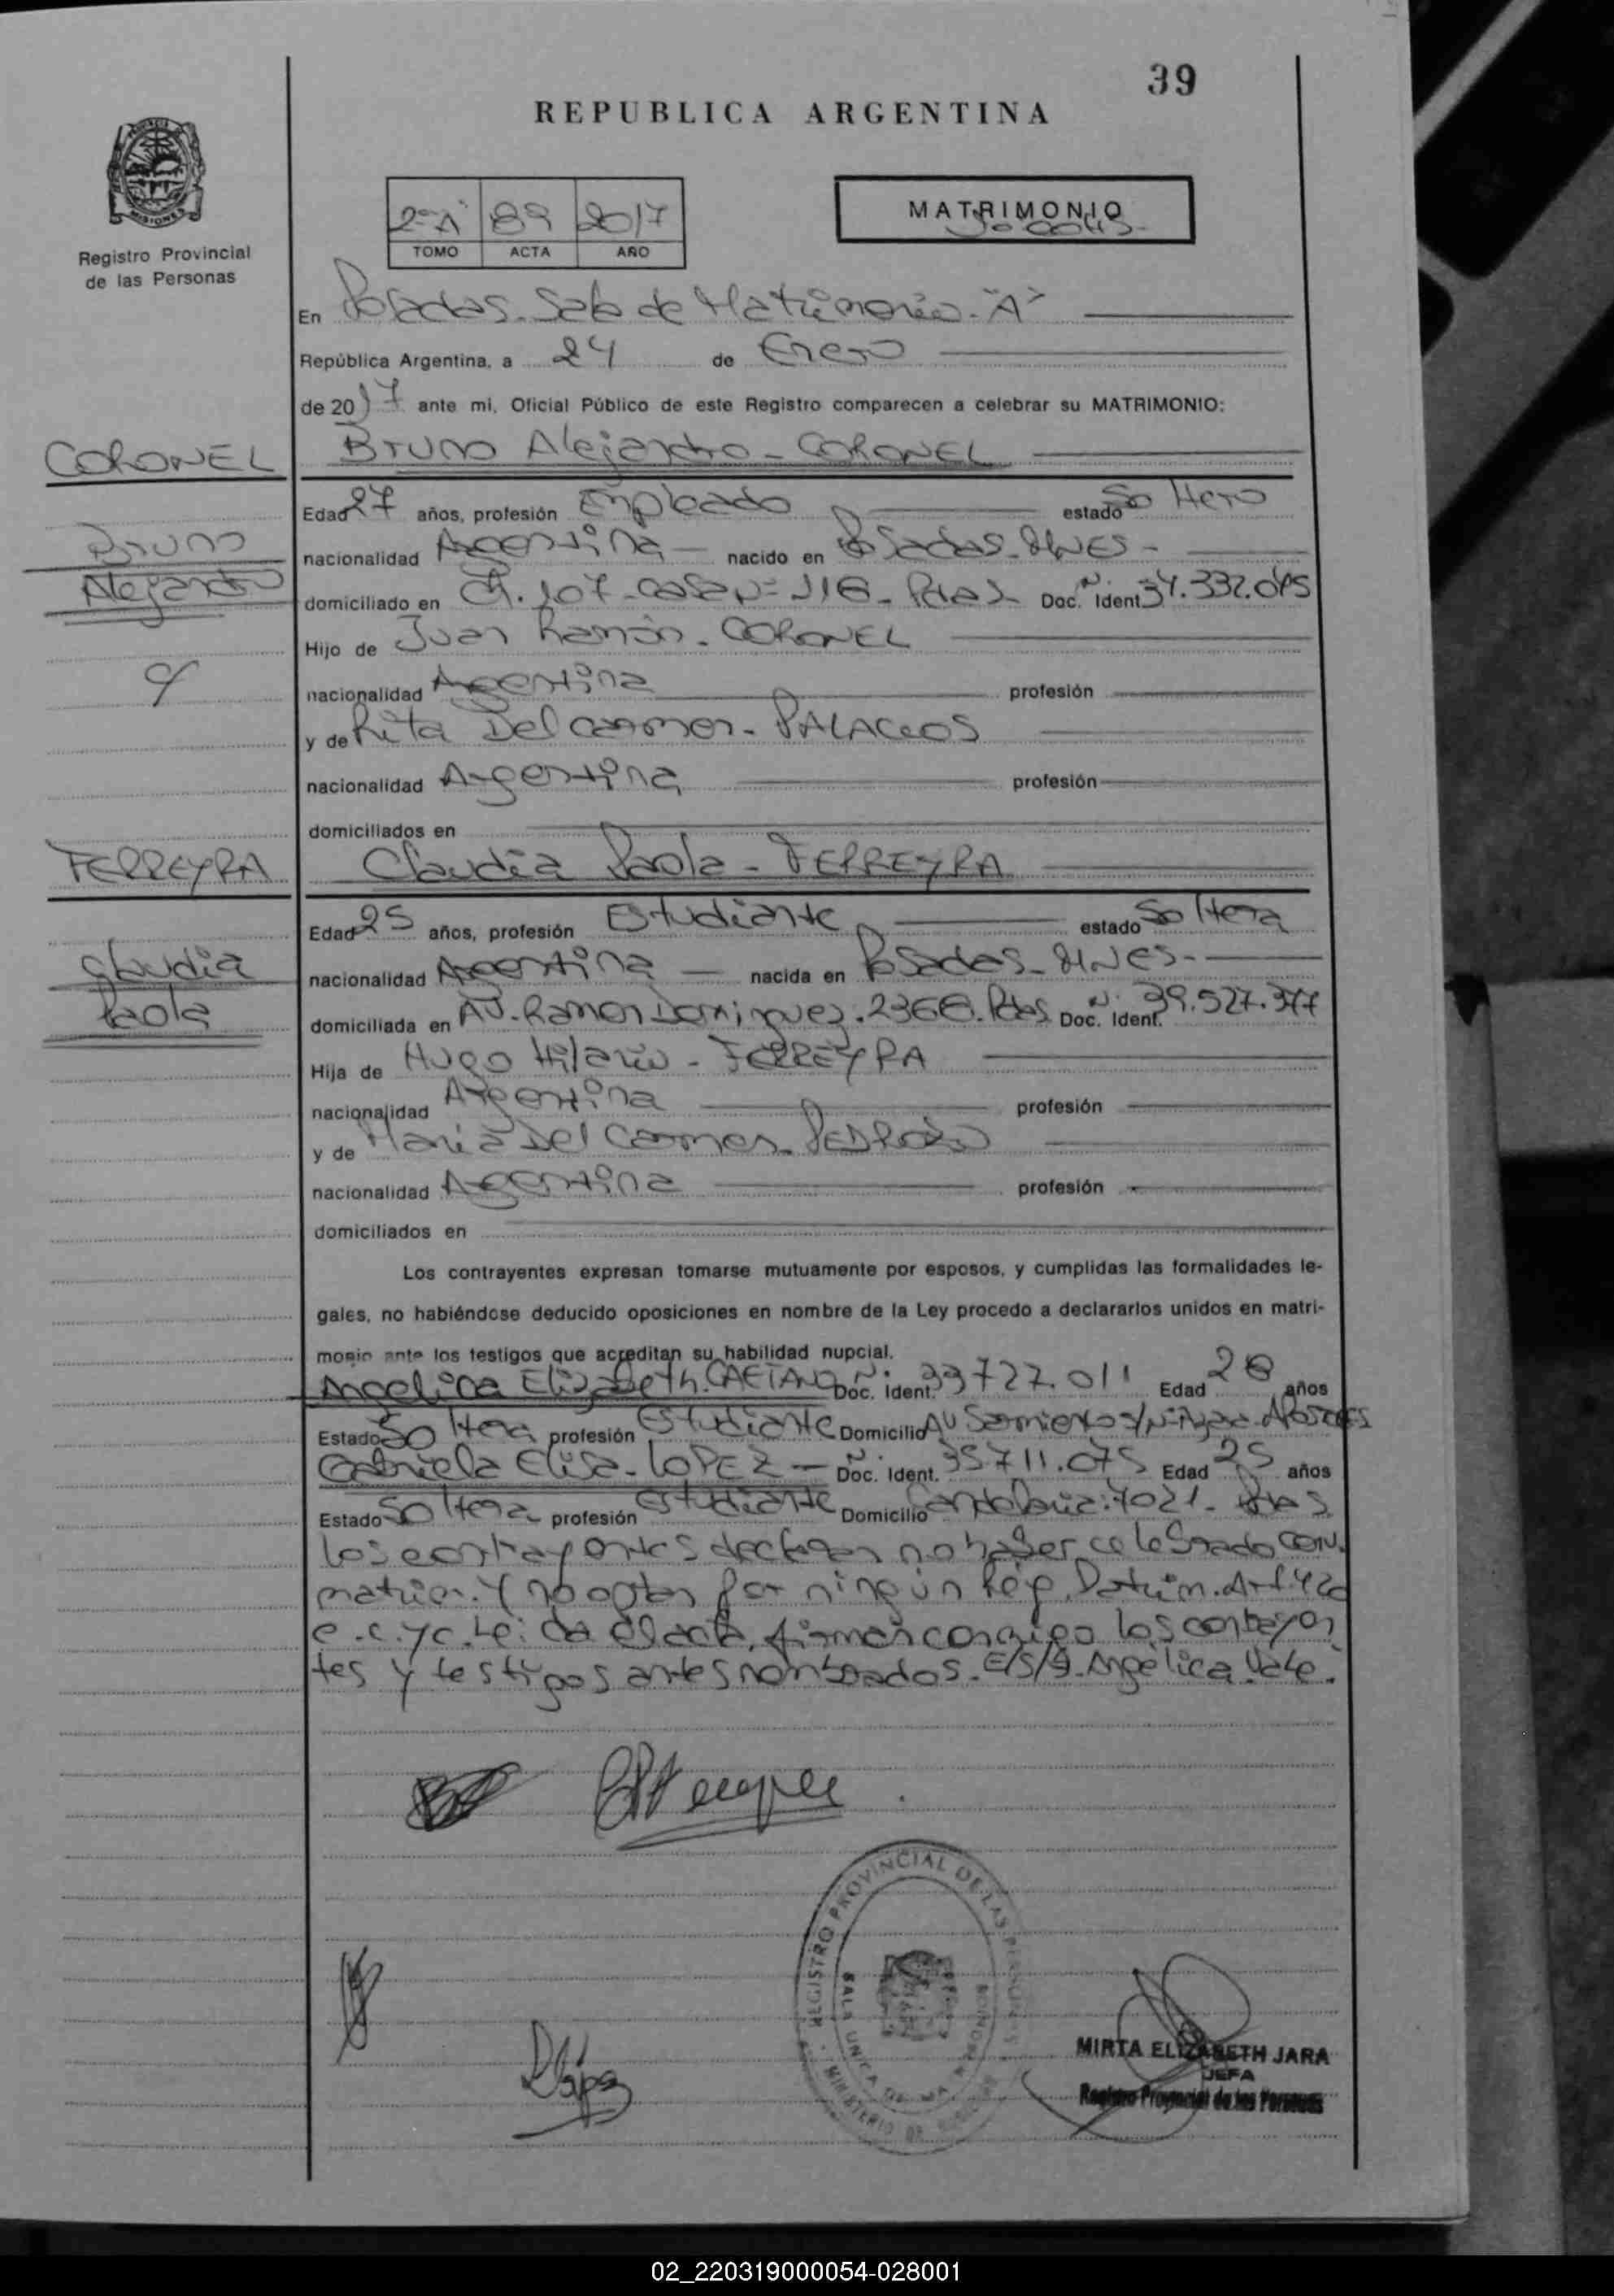 39
REPUBLICA ARGENTINA
MISIONES
Registro Provincial
de las Personas
2º"A" 89 2017
TOMO ACTA AÑO
MATRIMONIO
En Posadas. Sala de Matrimonio. "A"
República Argentina, a 24 de Enero
de 2017 ante mi, Oficial Público de este Registro comparecen a celebrar su MATRIMONIO:
CORONEL
Bruno Alejandro - CORONEL
Bruno
Alejandro
Edad 27 años, profesión Empleado estado Soltero
nacionalidad Argentina - nacido en Posadas. Mnes -
domiciliado en Ch. 107 - casa Nº 116 - Pdas Doc. Ident. Nº 34.332.045
Hijo de Juan Ramón - CORONEL
c/
nacionalidad Argentina profesión
y de Rita Del Carmen - PALACIOS
nacionalidad Argentina profesión
domiciliados en
FERREYRA
Claudia Paola - FERREYRA
Claudia
Paola
Edad 25 años, profesión Estudiante estado Soltera
nacionalidad Argentina - nacida en Posadas - Mnes -
domiciliada en AV. Ramon Dominguez. 2366. Pdas Doc. Ident. Nº 39.527.377
Hija de Hugo Hilario - FERREYRA
nacionalidad Argentina profesión
y de Maria Del Carmen - PEDROZO
nacionalidad Argentina profesión
domiciliados en
Los contrayentes expresan tomarse mutuamente por esposos, y cumplidas las formalidades le-
gales, no habiéndose deducido oposiciones en nombre de la Ley procedo a declararlos unidos en matri-
monio ante los testigos que acreditan su habilidad nupcial.
Angelina Elizabeth. CAETANO Doc. Ident. Nº 33727.011 Edad 28 años
Estado Soltera profesión Estudiante Domicilio AV Sarmiento S/Nº APOSTOLES
Gabriela Elisa - LOPEZ - Doc. Ident. Nº 35711.075 Edad 25 años
Estado Soltera profesión Estudiante Domicilio Candelaria: 7021 - Pdas
Los contrayentes declaran no haber celebrado conv.
matrim. Y no optan por ningún Rég. Patrim. Art. 420
c.c.yc. Leida el acta, firman conmigo los contrayen
tes y testigos antes nombrados. E/S/9. Angelica Vale.
REGISTRO PROVINCIAL DE LAS PERSONAS
SALA UNICA DE
MINISTERIO DE
MIRTA ELIZABETH JARA
JEFA
Registro Provincial de las Personas
02_220319000054-028001